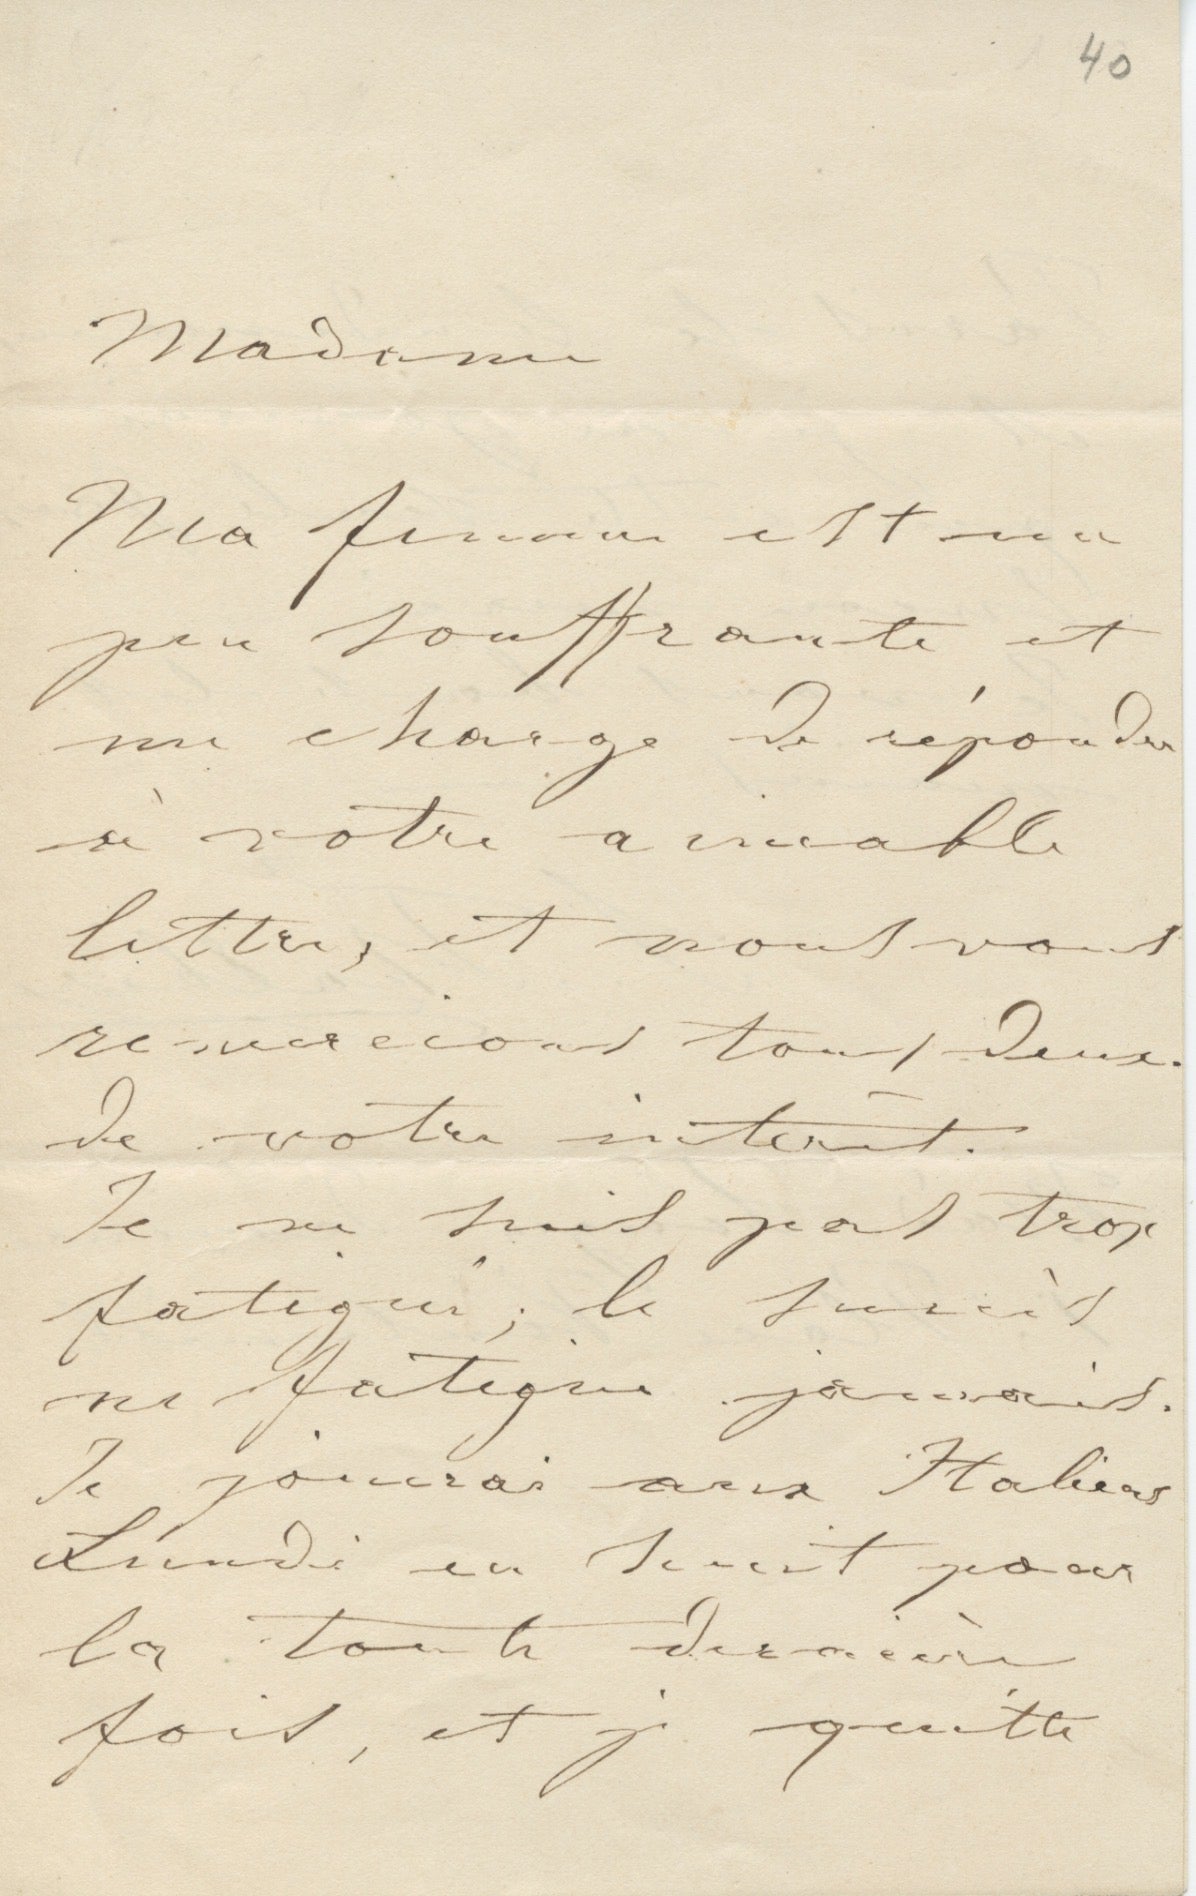 40
Madame
Ma femme est un
peu souffrante et
me charge de répondre
à votre aimable
lettre, et nous vous
remercions tous deux.
de votre intérêt.
Je ne suis pas trop
fatigué; le succès
ne fatigue jamais.
Je jouerai aux Italiens
Lundi en huit pour
la toute dernière
fois, et je quitte